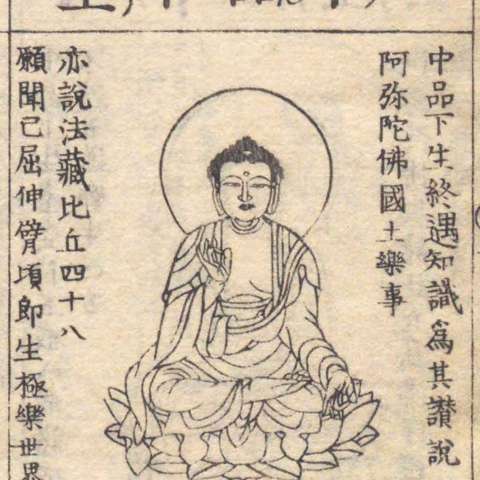 中品下生終遇知識爲其讚説
阿弥陀佛國土樂事
亦說法藏比丘四十八
願聞已屈伸臂頃即生極樂世界